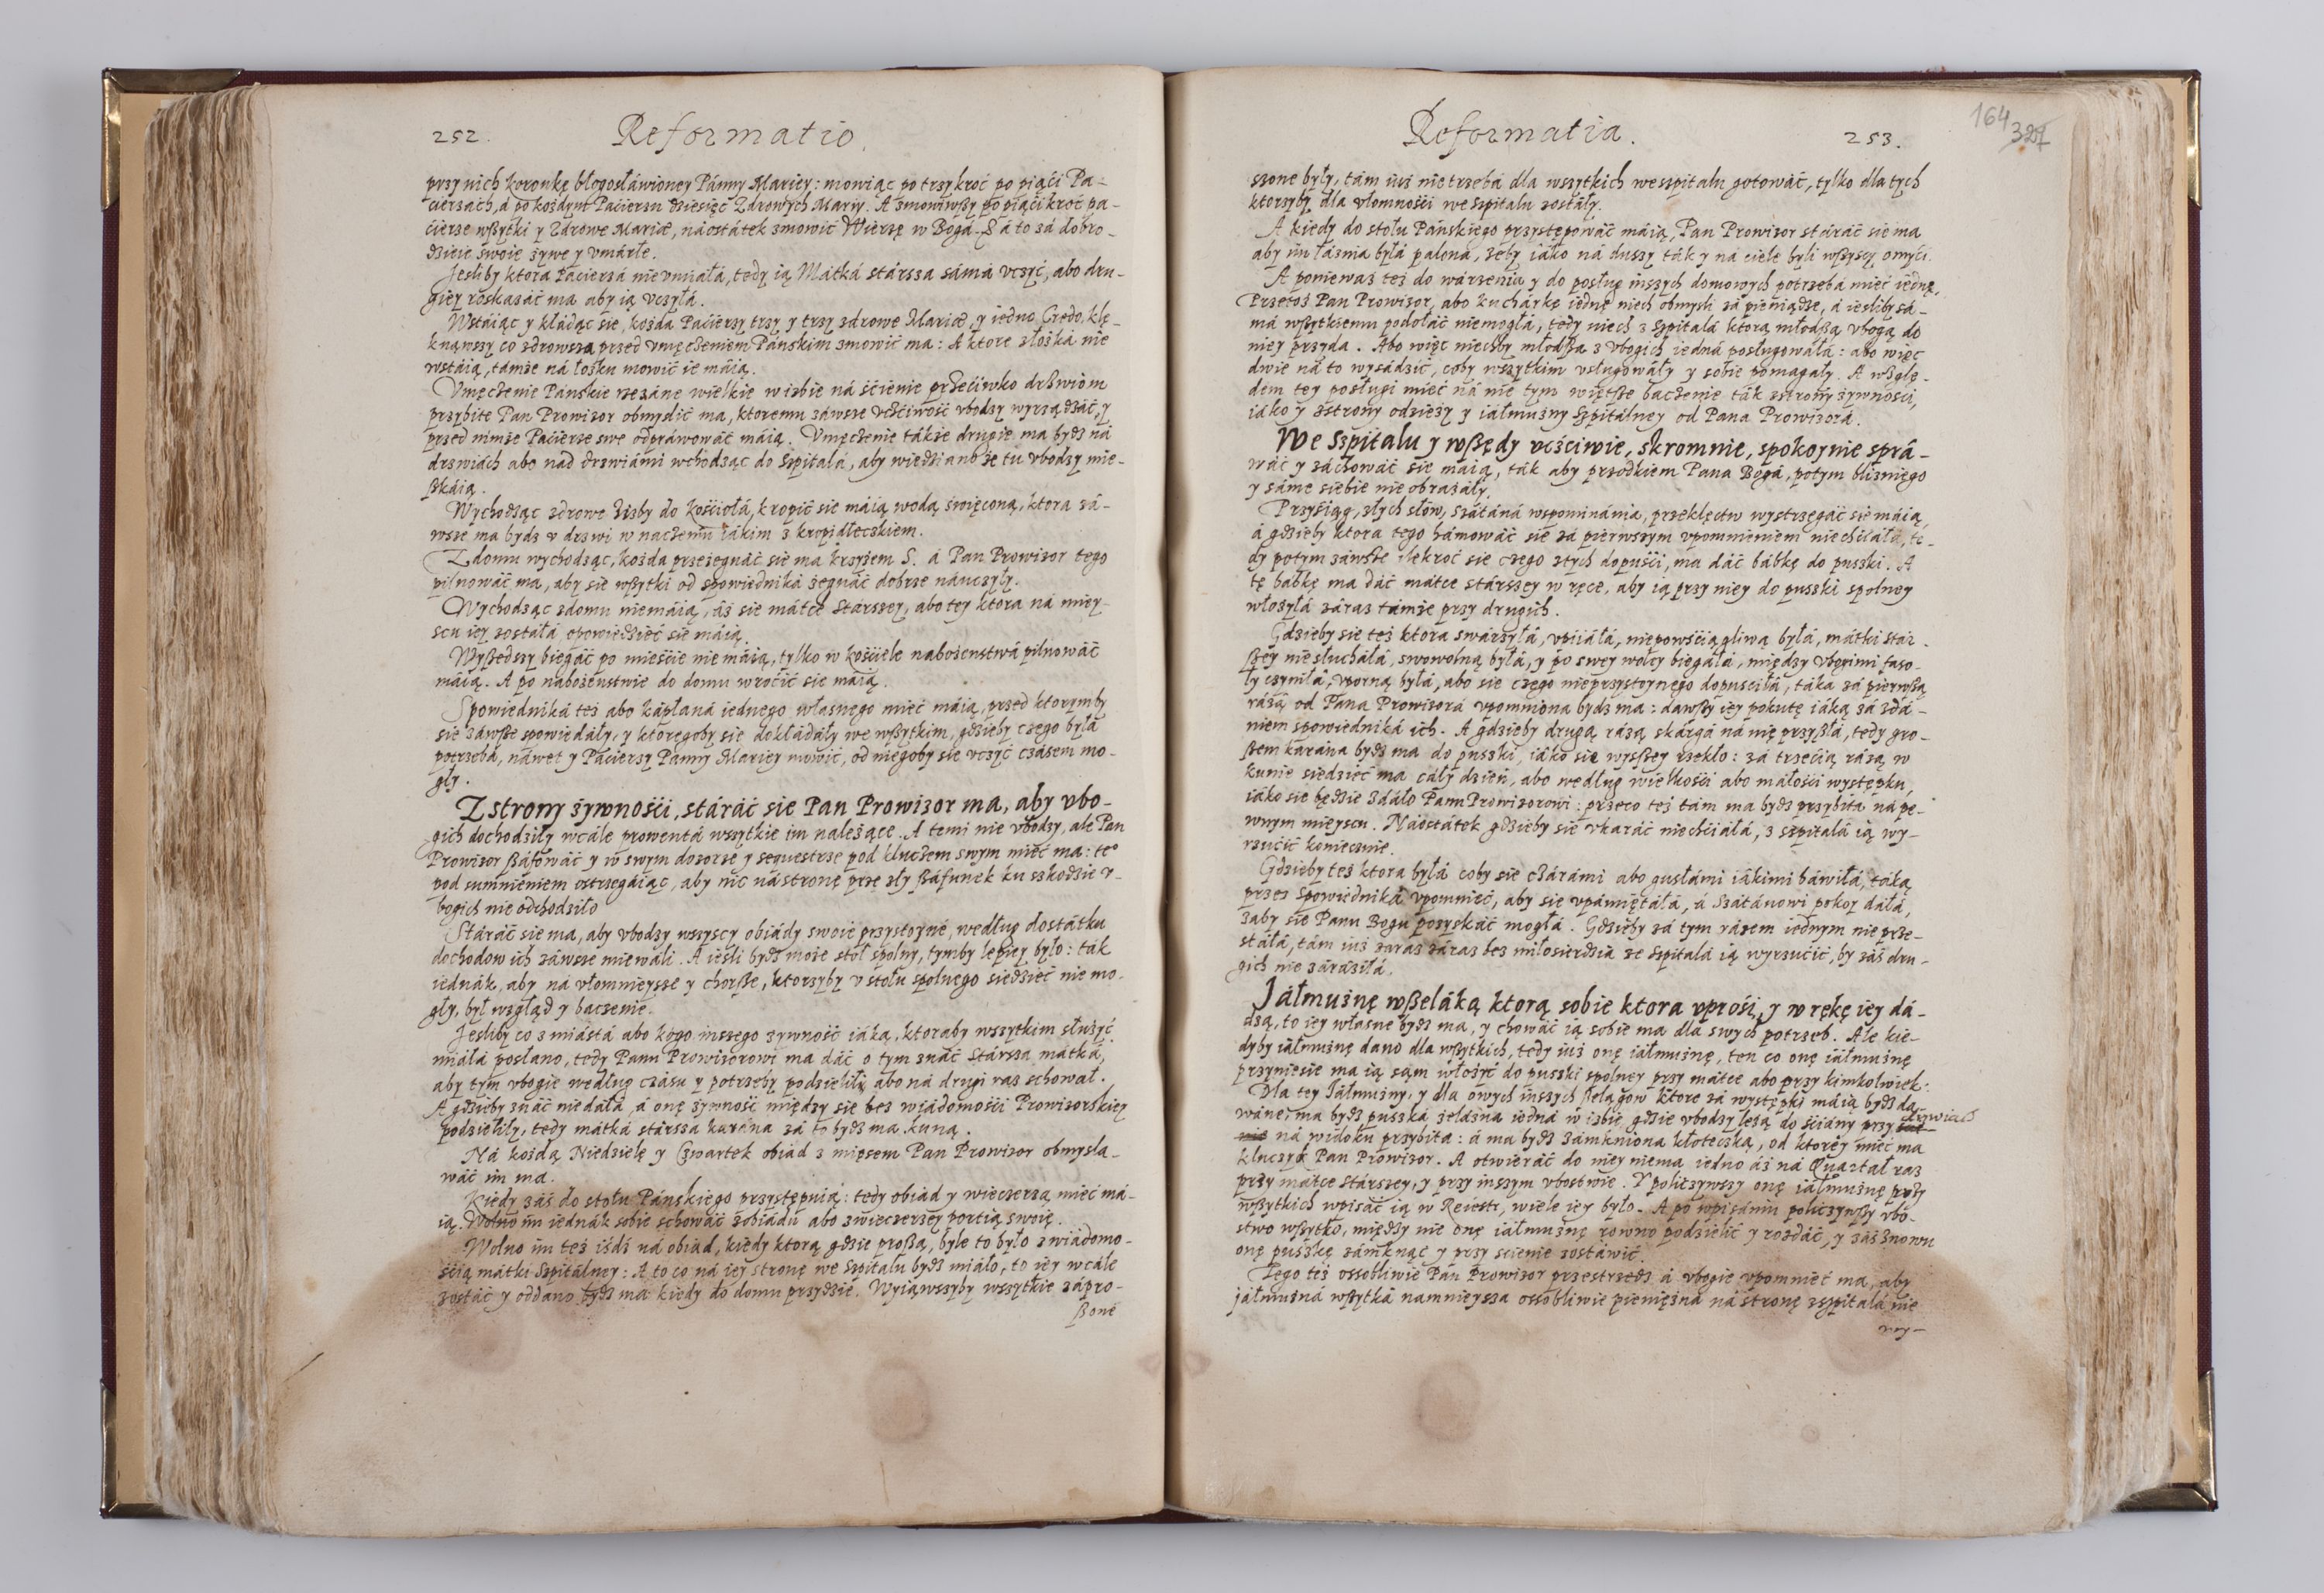 252.
Reformatio.
przy nich koronkę błogosłáwioney Pánny Máriey: mowiąc po trzykroć po piąći Pa-
ćierzach, á po kożdym Paćierzu dziesięć Zdrowych Mariy. A zmowiwszy po piąćikroć pa-
ćierze wßytki y Zdrowe Mariæ, náostátek zmowić Wierzę w Bogá. Zá to zá dobro-
dzieie swoie żywe y vmárłe.
Jesliby ktora Paćierzá nie vmiałá, tedy ią Mátká stársza sámá vczyć, abo dru-
giey roskazáć ma aby ią vczyłá.
Wstáiąc y kłádąc sie, kożda Paćierzy trzy y trzy zdrowe Mariæ, y iedno Credo, klę-
knąwszy co zdrowsza przed vmęczeniem Páńskim zmowić ma: A ktore złożká nie
wstáią, támże ná łożku mowić ie máią.
Vmęczenie Pańskie rzezáne wielkie w izbie ná śćienie przećiwko drzwiom
przybite Pan Prowizor obmyslić ma, ktoremu záwsze vczćiwość vbodzy wyrządzáć, y
przed nimże Paćierze swe odpráwowáć máią. Vmęczenie tákże drugie ma bydz ná
drzwiách abo nad drzwiámi wchodząc do Szpitalá, aby wiedziano że tu vbodzy mie-
ßkáią.
Wychodząc zdrowe Izby do Kośćiołá, kropić sie máią wodą święconą, ktora zá-
wsze ma bydz v drzwi w naczeniu iákim z kropidłeczkiem.
Z domu wychodząc, kożda przeżegnáć sie ma krzyżem S. á Pan Prowizor tego
pilnowáć ma, aby sie wßytki od spowiedniká żegnáć dobrze náuczyły.
Wychodząc z domu niemáią, áż sie mátce Stárszey, abo tey ktora ná miey-
scu iey zostáłá opowiedzieć sie máią.
Wyßedszy biegáć po mieśćie nie máią, tylko w kośćiele nabożenstwá pilnowáć
máią. A po nabożenstwie do domu wroćić sie máią.
Spowiedniká też abo kápłaná iednego własnego mieć máią, przed ktorymby
sie záwße spowiedáły, y ktoregoby sie dokłádáły we wßytkim, gdzieby czego byłá
potrzebá, náwet y Paćierzy Panny Mariey mowić, od niegoby sie vczyć czásem mo-
gły.
Z strony żywnośći, stáráć sie Pan Prowizor ma, aby vbo-
gich dochodziły wcále prowentá wszytkie im należące. A temi nie vbodzy, ale Pan
Prowizor ßáfowáć y w swym dozorze y sequestrze pod kluczem swym mieć ma: te°
pod sumnieniem ostrzegáiąc, aby nic ná stronę prze zły ßáfunek ku szkodzie v-
bogich nie odchodziło
Stáráć sie ma, aby vbodzy wszyscy obiády swoie przystoyne, według dostátku
dochodow ich záwsze miewáli. A iesli bydz może stoł spolny, tymby lepiey było: ták
iednák, aby ná vłomnieysze y chorße, ktorzyby v stołu spolnego siedzieć nie mo-
gły, był wzgląd y baczenie.
Jesliby co z miástá abo kogo inszego żywność iáka, ktoraby wszytkim służyć
miáłá posłano, tedy Panu Prowizorowi ma dáć o tym znáć Stársza mátká,
aby tym vbogie według czásu y potrzeby podzielili, abo ná drugi raz schował.
A gdzieby znáć niedáłá, á onę żywność między się bez wiádomośći Prowizorskiey
podzieliły, tedy mátká stársza karána zá to bydz ma kuną.
Ná kożdą Niedzielę y Czwartek obiad z mięsem Pan Prowizor obmysla-
wáć im ma.
Kiedy záś do stołu Páńskiego przystępuią: tedy obiad y wieczerzą mieć má-
ią. Wolno im iednák sobie schowáć z obiádu abo z wieczerzey portią swoię.
Wolno im też iśdź ná obiad, kiedy ktorą gdzie proßą, byle to było z wiádomo-
śćią mátki Szpitálney: A to co ná iey stronę we Szpitalu bydz miáło, to iey wcále
zostáć y oddano bydz ma kiedy do domu przydzie. Wyiąwszyby wszytkie zápro-
ßone
Reformatia.
253.
164
szone były, tám iuż nietrzebá dla wszytkich weszpitalu gotowáć, tylko dla tych
ktorzyby dla vłomnośći we szpitalu zostáły.
A kiedy do stołu Páńskiego przystępowáć máią, Pan Prowizor stáráć sie ma
aby im łáźnia byłá palona, żeby iáko ná duszy ták y ná ciele byli wßyscy omyći.
A ponieważ też do wárzenia y do posług inszych domowych potrzebá mieć iednę,
Przetoż Pan Prowizor, abo kuchárkę iednę niech obmyśli zá pieniądze, á iesliby sá-
má wßytkiemu podołáć niemogłá, tedy niech z Szpitalá ktorą młodßą vbogą do
niey przyda. Abo więc niechby młodßa z vbogich iedná posługowáłá: abo więc
dwie ná to wysádzić, coby wszytkim vsługowáły y sobie pomagáły. A wzglę-
dem tey posługi mieć ná nie tym więtße baczenie ták z strony żywnośći,
iáko y z strony odzieży y iáłmużny Szpitálney od Pana Prowizorá.
We Szpitalu y wßędy vcźćiwie, skromnie, spokoynie sprá-
wáć y záchowáć sie máią, ták aby przodkiem Pana Bogá, potym bliźniego
y sáme siebie nie obrażáły.
Przyśiąg, złych słow, szátáná wspominánia, przeklęctw wystrzegáć sie máią,
á gdzieby ktora tego hámowáć sie zá pierwszym vpomnieniem niechćiáłá, te-
dy potym záwße ilekroć sie czego z tych dopuśći, ma dáć bábkę do puszki. A
tę bábkę ma dáć mátce stárszey w ręce, aby ią przy niey do puszki spolney
włożyłá záraz támże przy drugich.
Gdzieby sie też ktora swárzyłá, vpiiáłá, niepowśćiągliwą byłá, mátki stár-
ßey niesłucháłá, swowolną byłá, y po swey woley biegáłá, między vbogimi faso-
ły czyniłá, vporną byłá, abo sie czego nieprzystoynego dopuśćiłá, táka zá pierwßą
rázą od Pana Prowizorá vpomniona bydz ma: dawßy iey pokutę iáką zá zdá-
niem spowiedniká ich. A gdzieby drugą rázą skárgá ná nię przyßłá, tedy gro-
ßem karána bydz ma do puszki, iáko się wyßßey rzekło: zá trzećią rázą w
kunie siedzieć ma cáły dzień, abo według wielkośći abo máłośći występku,
iáko sie będzie zdáło Panu Prowizorowi: przeco też tám ma bydz przybitá ná pe-
wnym mieyscu. Náostátek gdzieby sie vkaráć niechćiáłá, z szpitalá ią wy-
rzućić koniecznie.
Gdzieby też ktora byłá coby sie czárámi abo gusłámi iákimi báwiłá, táką
przez Spowiedniká vpomnieć, aby się vpámiętáłá, á Szátánowi pokoy dáłá,
żaby sie Panu Bogu pozyskáć mogłá. Gdzieby zá tym rázem iednym nie prze-
stáłá, tám iuż zaraz záraz bez miłosierdzia ze Szpitalá ią wyrzućić, by záś dru-
gich nie záráźiłá.
Jáłmużnę wßeláką ktorą sobie ktora vprośi, y w rękę iey dá-
dzą, to iey własne bydz ma, y chowáć ią sobie ma dla swych potrzeb. Ale kie-
dyby iáłmużnę dano dla wßytkich, tedy iuż onę iáłmużnę, ten co onę iáłmużnę
przyniesie ma ią sam włożyć do puszki spolney przy mátce abo przy kimkolwiek.
Dla tey Jáłmużny, y dla owych inszych ßelągow ktore zá występki máią bydz da-
wáne, ma bydz puszka żelázna iedná w izbie gdzie vbodzy leżą do śćiány przy drzwiach
ná widoku przybita: á ma bydz zámkniona kłoteczką, od ktorey mieć ma
kluczyk Pan Prowizor. A otwieráć do niey niema iedno áż ná Quartał raz
przy mátce Stárszey, y przy inszym vbostwie. Y policzywszy onę iáłmużnę przy
wßytkich wpisáć ią w Reiestr, wiele iey było. A po wpisániu policzywßy vbo-
stwo wßytko, między nie onę iáłmużnę rowno podzielić y rozdáć, y záś znowu
onę puszkę zámknąć y przy scienie zostáwić.
Tego też ossobliwie Pan Prowizor przestrzedz á vbogie vpomnieć ma, aby
jáłmużná wßytká namnieysza ossobliwie pieniężna ná stronę z szpitalá nie
wy-